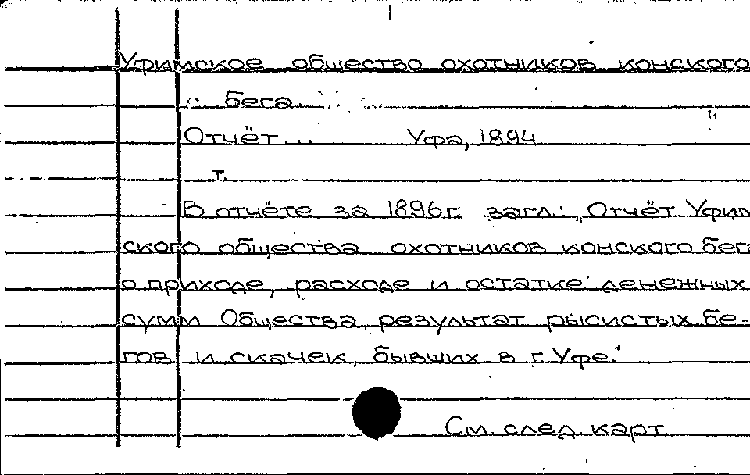 Уфимское общество охотников конского
бега.
Отчёт... Уфа, 1894
т.
В отчёте за 1896г. загл.: „Отчёт Уфим
ского общества охотников конского бега
о приходе, расходе и остатке денежных
сумм Общества, результат рысистых бе-
гов и скачек, бывших в г. Уфе."
См. след. карт.